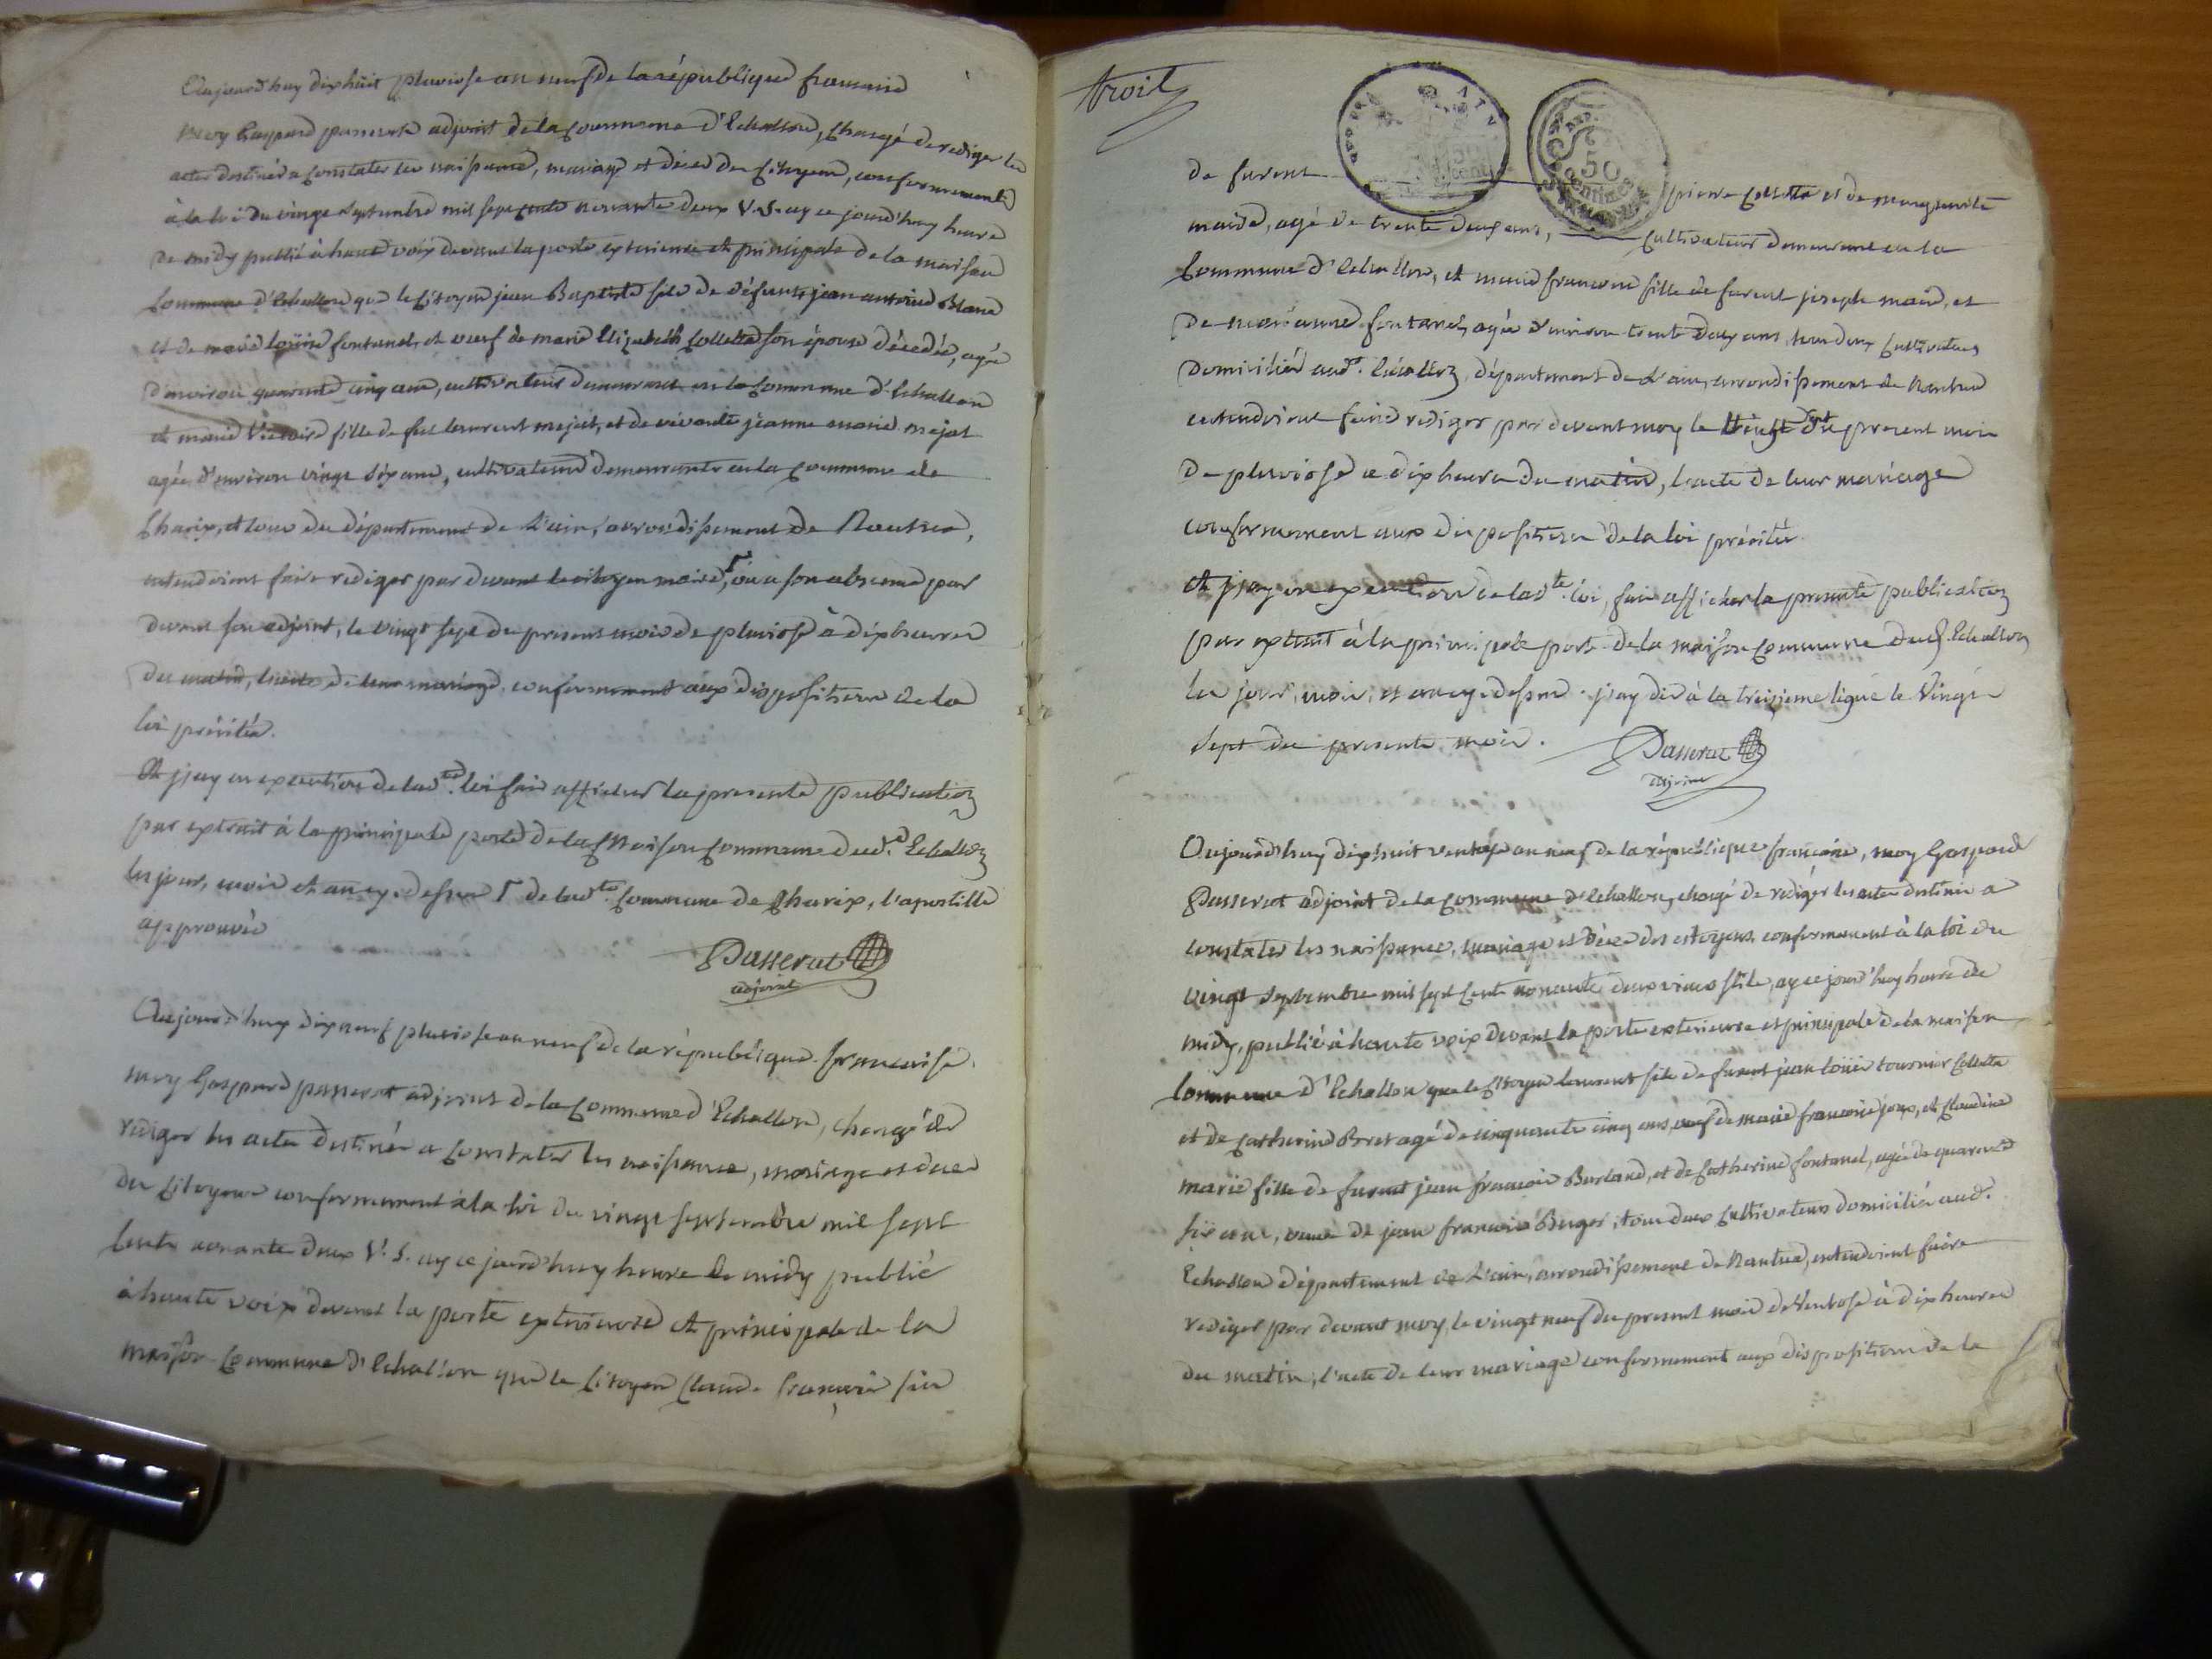 Dujourd'huy dixhuit pluviose an neuf de la république francaise
Moy Gaspard passerat adjoint de la Commune d'Echallon, Chargé de rediger les
actes destinés a Constater les naissance, mariage et décès des Citoyens, conformement
à la loi du vingt septembre mil sept cents nonante deux V.S. ay ce jourd'huy heure
de midy publié à haute voix devant la porte exterieure et principale de la maison
Commune d'Echallon que le Citoyen jean Baptiste fils de défunts jean antoine Blanc
et de marie loüise fontanel, et veuf de marie Elizabeth Collette son épouse décedée, agé
d'environ quarante cinq ans, cultivateur demeurant en la Commune d'Echallon
et marie Victoire fille de fut laurent mejat, et de vivante jeanne marie mejat
agée d'environ vingt six ans, cultivateurs demeurante en la Commune de
Charix, et tous du département de L'ain, arrondissement de Nantua,
entendoient faire rediger par devant le citoyen maire Γ, ou a son absence par
devant son adjoint, le vingt sept du present mois de pluviose à dix heures
du matin, l'acte de leur mariage, conformement aux dispositions de la
loi précitée.
Et j'ay en execution de lad.te loi fait afficher la presente publication
par extrait à la principale porte de la Maison Commune dud.d Echallon
les jour, mois et an cy-dessus Γ de lad.te Commune de Charix, l'apostille
approuvée
Passerat
adjoint
Dujourd'huy dix neuf pluviose an neuf de la république francaise.
moy Gaspard passerat adjoint de la Commune d'Echallon, chargé de
rediger les actes destinés a Constater les naissance, mariage et deces
des Citoyens conformement à la loi du vingt septembre mil sept
cents nonante deux V. S. ay ce jourd'huy heure de midy publié
à haute voix devant la porte exterieure et principale de la
maison Commune d'Echallon que le Citoyen Claude François fils
troit
de furent pierre Collette et de marguerite
maire, agé de trente deux ans, Cultivateur demeurant en la
Commune d'Echallon, et marie francoise fille de furent joseph maire, et
de marianne fontanel, agée d'environ trente deux ans, tous deux Cultivateurs
Domiciliés aud.t Echallon, département de L'ain, arrondissement de Nantua
entendoient faire rediger par devant moy le vingt du present mois
de pluviose a dix heures du matin, l'acte de leur mariage
conformement aux dispositions de la loi précitée.
et j'ay en execution de lad.te loi, fait afficher la presente publication
par extrait à la principale porte de la maison Commune dud. Echallon
les jour, mois, et an cy-dessus. j'ay dit à la treizieme ligne le Vingt
sept du presente mois.
Passerat
adjoint
Dujourd'huy dixhuit ventose an neuf de la république francoise, moy Gaspard
Passerat adjoint de la Commune d'Echallon, chargé de rediger les actes destinés a
constater les naissance, mariage et décès des citoyens, conformement à la loi du
vingt septembre mil sept cents nonante deux vieux stile, ay ce jourd'huy heure de
midy, publié à haute voix devant la porte exterieure et principale de la maison
Commune d'Echallon que le Citoyen laurent fils de furent jean loüis tournier Colletta
et de Catherine Boret agé de cinquante cinq ans, veuf de marie francoise joux, et Claudine
marie fille de furent jean francois Burland, et de Catherine fontanel, agée de quarante
six ans, veuve de jean francois Buger, tous deux Cultivateurs domiciliés aud.t
Echallon département de L'ain, arrondissement de Nantua, entendoient faire
rediger par devant moy, le vingt neuf du present mois de Ventose à dix heures
du matin, l'acte de leur mariage conformement aux dispositions de la